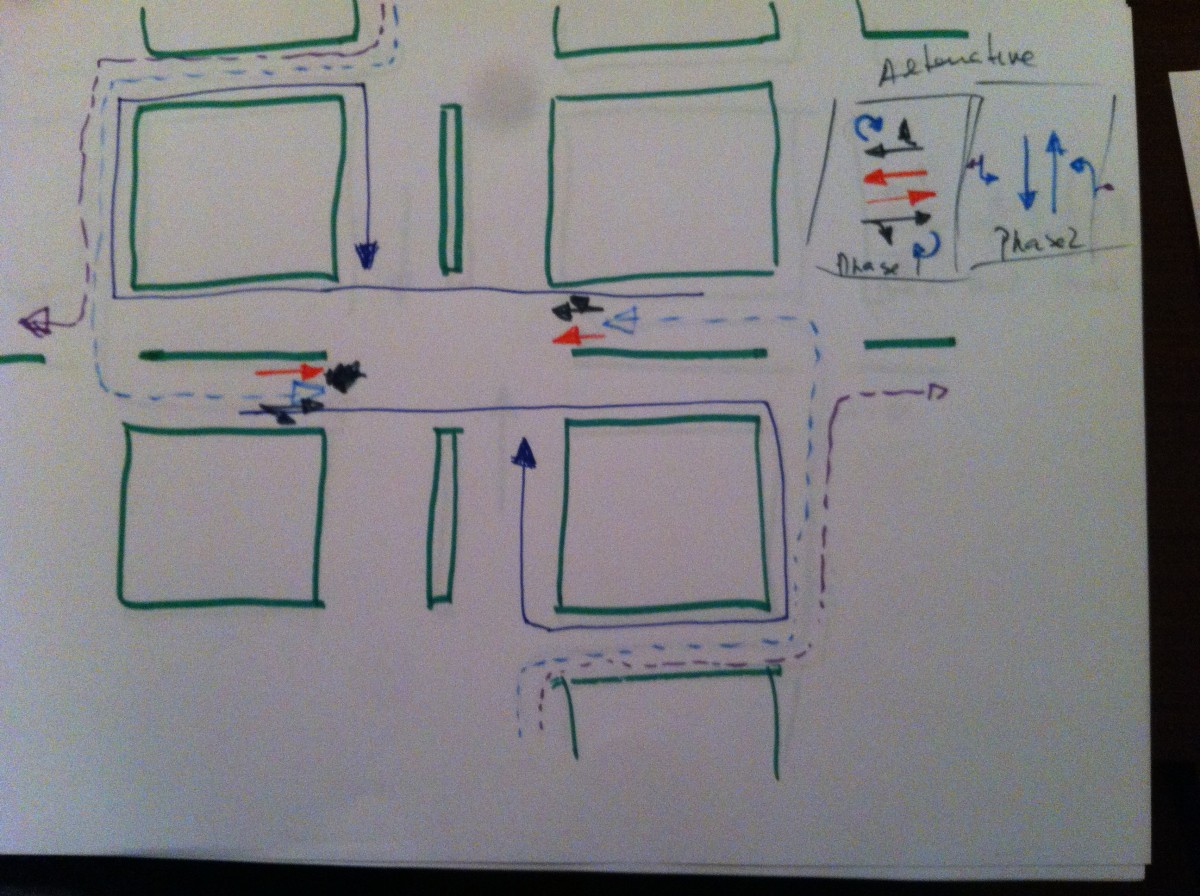 Alternative
Phase 1
Phase 2